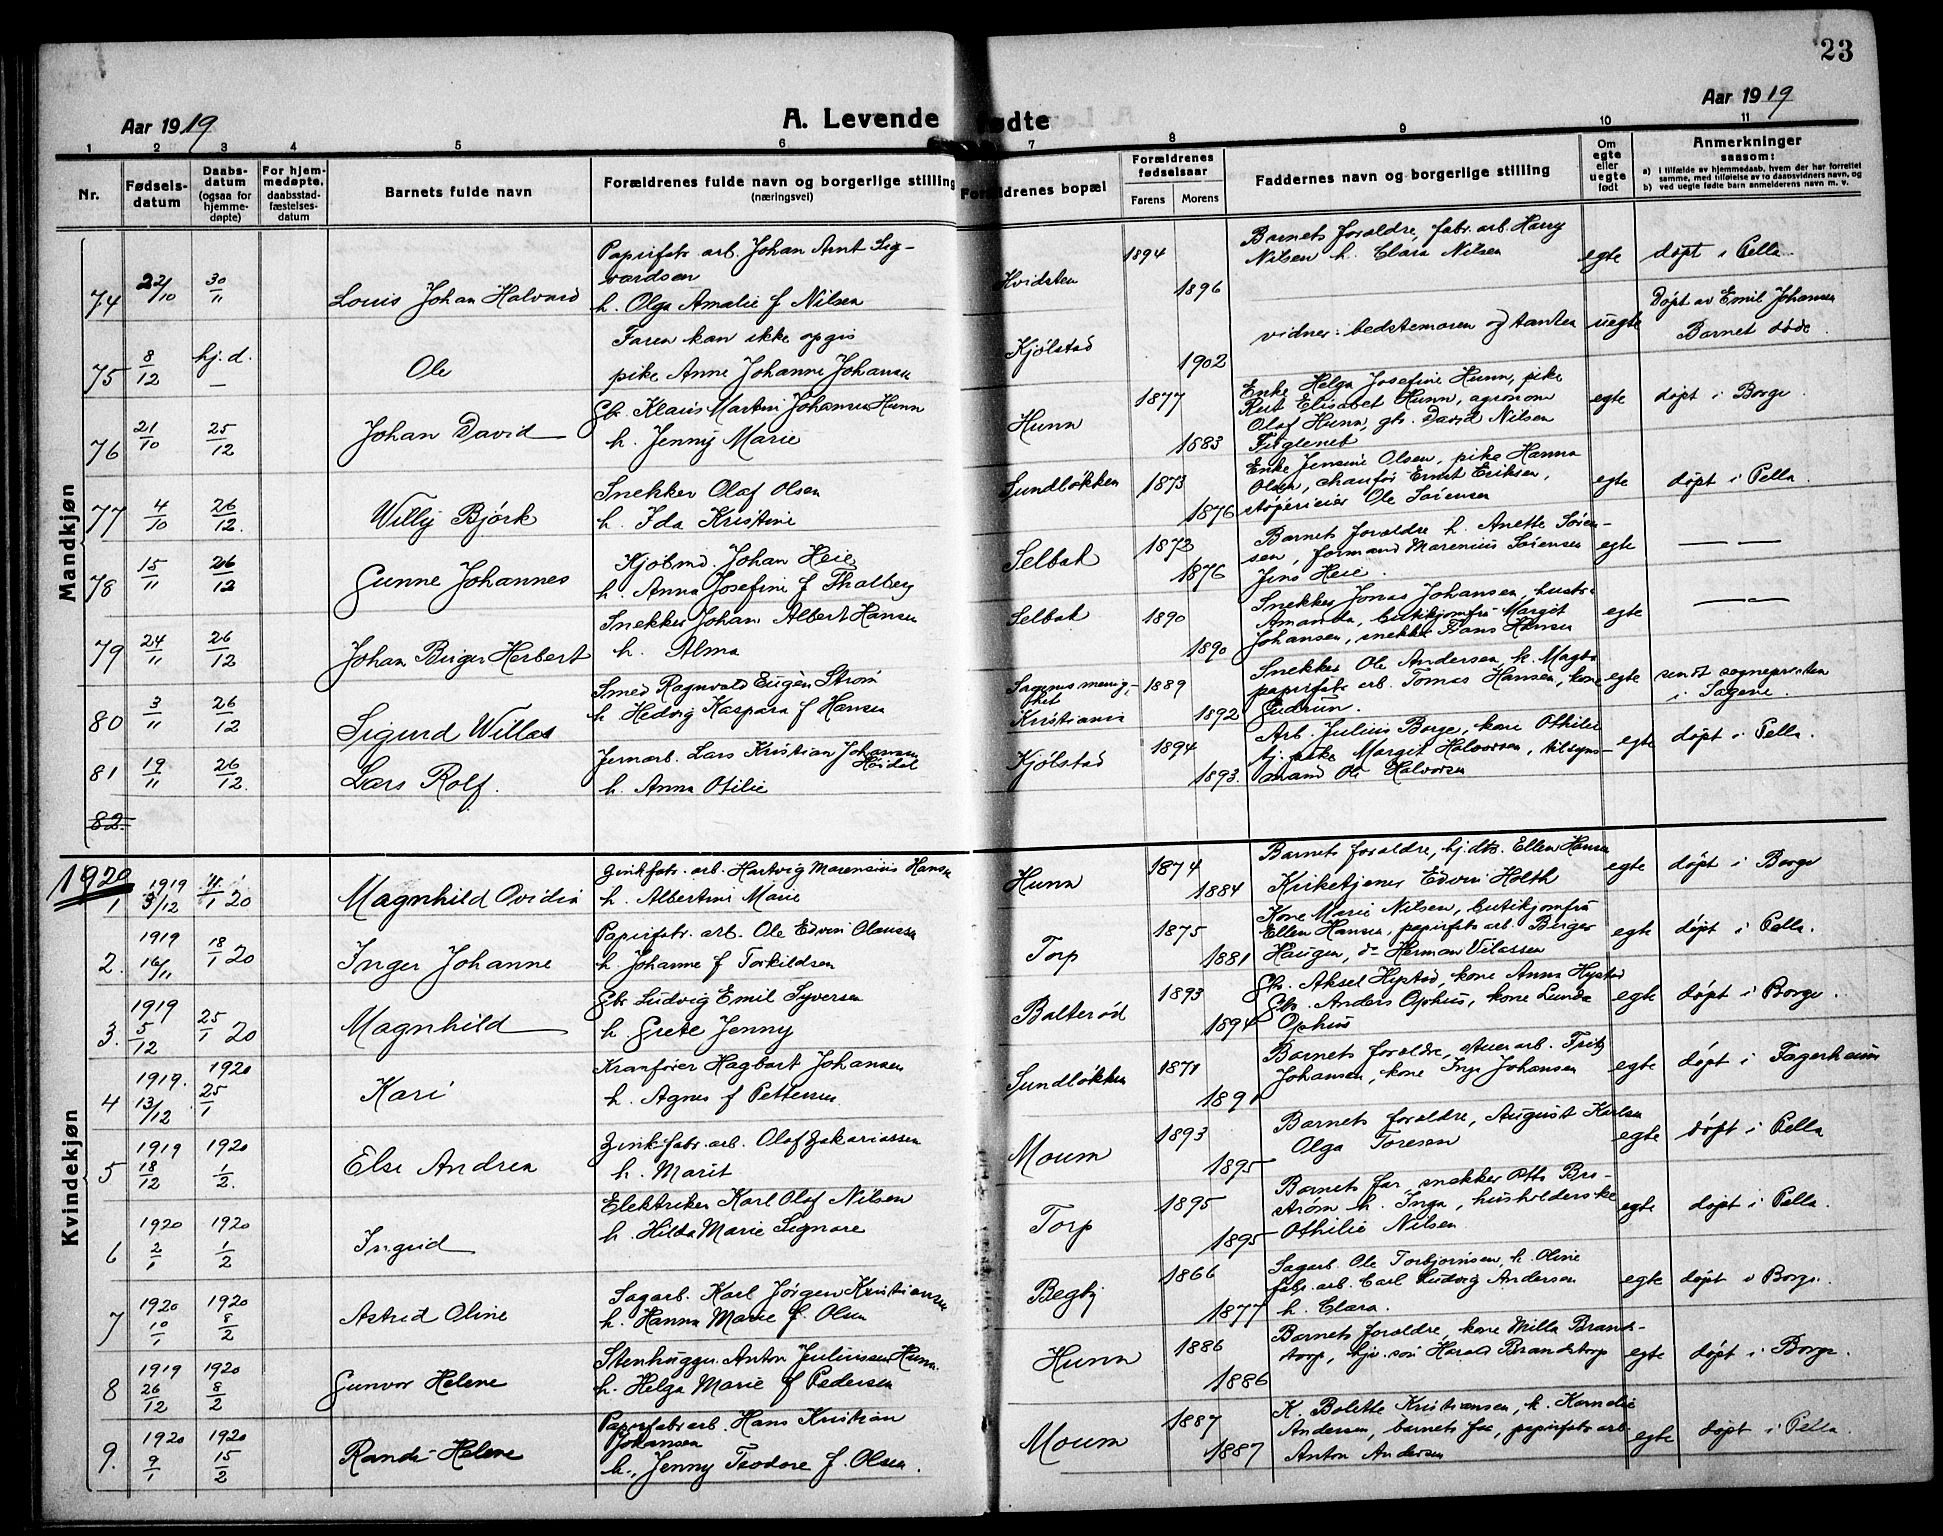 23
Aar 1919
A. Levende fødte
Aar 1919
1 2 3 4 5 6 7 8 9 10 11
Nr.
Fødsels-
datum
Daabs-
datum
(ogsaa for
hjemme-
døpte)
For hjem-
medøpte,
daabsstad-
fæstelses-
datum
Barnets fulde navn
Forældrenes fulde navn og borgerlige stilling
(næringsvei)
Forældrenes bopæl
Forældrenes
fødselsaar
Farens Morens
Faddernes navn og borgerlige stilling
Om
egte
eller
uegte
født
Anmerkninger
saasom:
a) i tilfælde av hjemmedaab, hvem der har forrettet
samme, med tilføielse av to daabsvidners navn, og
b) ved uegte fødte barn anmelderens navn m. v.
Mandkjøn
74 22/10 30/11 Louis Johan Halvard
Papirfabr. arb. Johan Arnt Sig-
vardsen
h. Olga Amalie f Nilsen
Hvidsten 1894 1896
Barnets foraldre, fabr. arb. Harry
Nilsen h. Clara Nilsen
egte døpt i Pella.
75 8/12 hj. d. — Ole
Faren kan ikke opgis
pike Anne Johanne Johansen
Kjølstad 1902
vidner: bedstemoren og tanten
uegte Døpt av Emil Johansen
Barnet døde.
76 21/10 25/12 Johan David
Gbr. Klaus Martin Johansen Hunn
h. Jenny Marie
Hunn 1877 1883
Enke Helga Josefine Hunn, pike
Rut Elisabet Hunn, agronom
Olaf Hunn, gbr. David Nilsen
Fuglenet
egte døpt i Borge.
77 4/10 26/12. Willy Björk
Snekker Olaf Olsen
h. Ida Kristine
Sundløkken 1873 1876
Enke Jensine Olsen, pike Hanna
Olsen, chauför Ernst Eriksen,
støperieier Ole Sørensen
egte døpt i Pella.
78 15/11 26/12 Gunne Johannes
Kjøbmd. Johan Heie
h. Anna Josefine f Thalberg
Selbak 1872 1876
Barnets foraldre h. Anette Søren-
sen, formand Marenius Sørensen
Jens Heie.
egte — —
79 24/11 26/12 Johan Birger Herbert
Snekker Johan Albert Hansen
h. Alma
Selbak 1890 1890
Snekker Jonas Johansen, hustr.
Amanda, butikjomfru Margit
Johansen, snekker Frans Hansen
egte — " —
80 3/11 26/12 Sigurd Willas
Smed Ragnvald Eugèn Strøm
h Hedvig Kaspara f Hansen
Sagenes menig-
het
Kristiania 1889 1892
Snekker Ole Andersen, h. Magda
papirfabr. arb. Tomas Hansen, kone
Gudrun.
egte sendt sognepresten
i Sagene.
81 19/11 26/12. Lars Rolf.
Jernarb. Lars Kristian Johansen
Høidal
h. Anna Otilie
Kjølstad 1894 1893.
Arb. Julius Borge, kone Othilie
tj. pike Margit Halvorsen, tilsyns-
mand Ole Halvorsen
egte døpt i Pella.
82.
1920
Kvindekjøn
1 1919 3/12 11/1 20 Magnhild Ovidia
Zinkfabr. arb. Hartvig Marensius Hansen
h. Albertine Marie
Hunn 1874 1884
Barnets foraldre, hj.dtr. Ellen Hansen
Kirketjener Edvin Holth
egte døpt i Borge
2. 1919 16/11 18/1 20 Inger Johanne
Papirfabr. arb. Ole Edvin Olaussen
h. Johanne f Torkildsen
Torp 1875 1881
Kone Marie Nilsen, butikjomfru
Ellen Hansen, papirfabr. arb. Birger
Haugen, do Herman Vilassen
egte døpt i Pella.
3. 1919 5/12 25/1 20 Magnhild
Gbr Ludvig Emil Syversen
h. Grete Jenny
Balterød 1893 1894
Gbr. Aksel Hystad, kone Anna Hystad
Gbr. Anders Ophus, kone Lunda
Ophus
egte døpt i Borge.
4 1919. 13/12 1920 25/1 Kari
Kranfører Hagbart Johansen
h. Agnes f Pettersen
Sundløkken 1871 1891
Barnets foraldre, stuerarb. Fritz
Johansen, kone Inga Johansen
egte døpt i Fagerheim
5 1919 18/12 1920 1/2. Else Andrea
Zinkfabr. arb. Olaf Zakariassen
h. Marit
Moum 1893 1895
Barnets foraldre, August Karlsen
Olga Toresen
egte døpt i Pella
6 1920 2/1 1920 1/2 Ingrid
Elektriker Karl Olaf Nilsen
h. Hilda Marie Signore
Torp 1895 1895
Barnets far, snekker Otto Bre-
strøm h. Inga, husholderske
Othilie Nilsen.
egte døpt i Pella.
7 1920 10/1 1920 8/2 Astrid Oline
Sagarb. Karl Jørgen Kristiansen
h. Hanna Marie f. Olsen
Begby 1866 1877
Sagarb. Ole Torbjørnsen, h. Oline
fabr. arb. Carl Ludvig Andersen
h. Clara.
egte døpt i Borge.
8 1919 26/12 1920 8/2 Gunvor Helene
Stenhugger. Anton Juliussen Hunn.
h. Helga Marie f Pedersen
Hunn 1886 1886
Barnets foraldre, kone Milla Brand-
torp, hjv. søn Harald Brandtorp
egte døpt i Borge.
9. 1920 9/1 1920 15/2 Randi Helene
Papirfabr arb. Hans Kristian
Johansen
h., Jenny Teodore f. Olsen.
Moum 1887 1887
K. Bolette Kristiansen, k. Kornelie
Andersen, barnets far, papirfabr arb.
Anton Andersen
egte døpt i Pella.